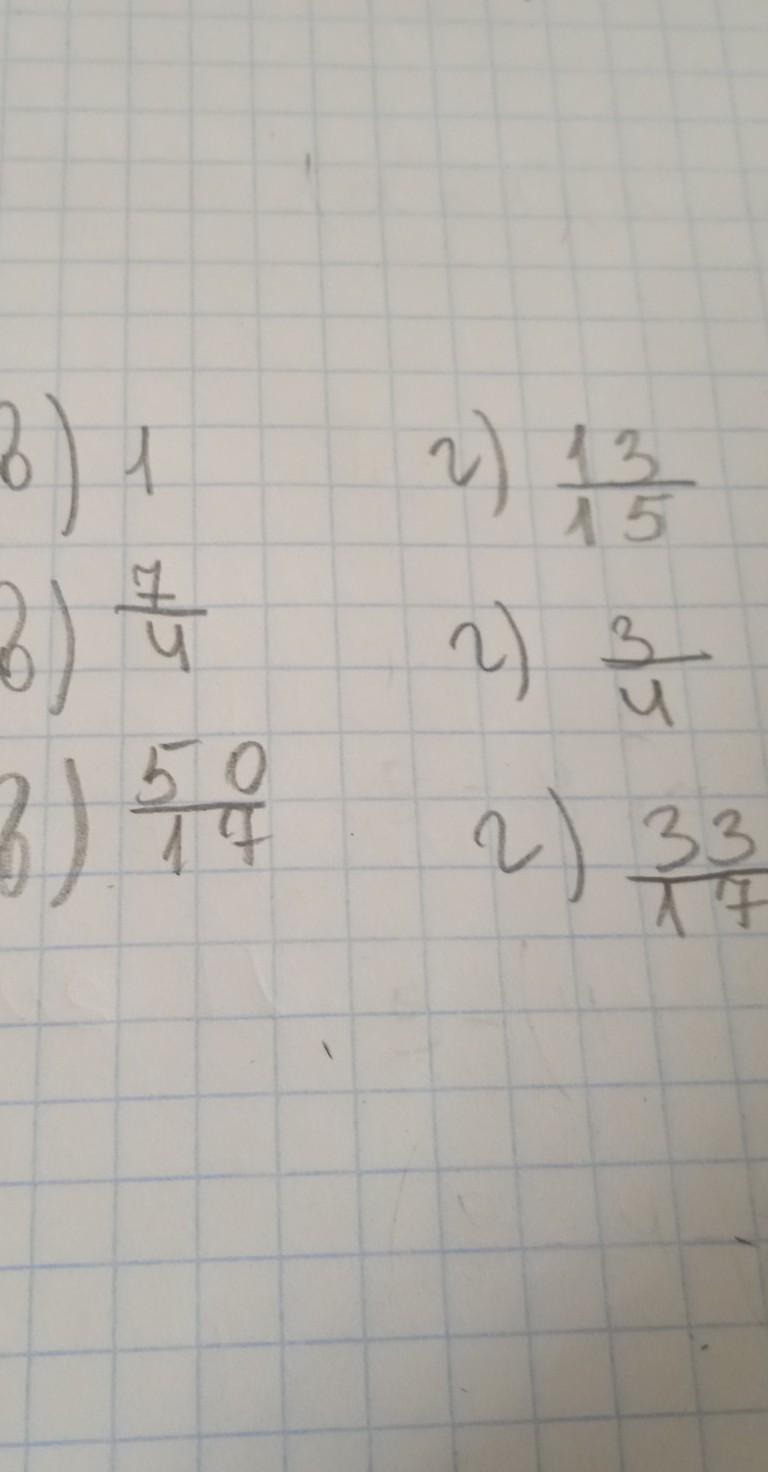 в) 1 г) 13/15
в) 7/4 г) 3/4
в) 50/17 г) 33/17